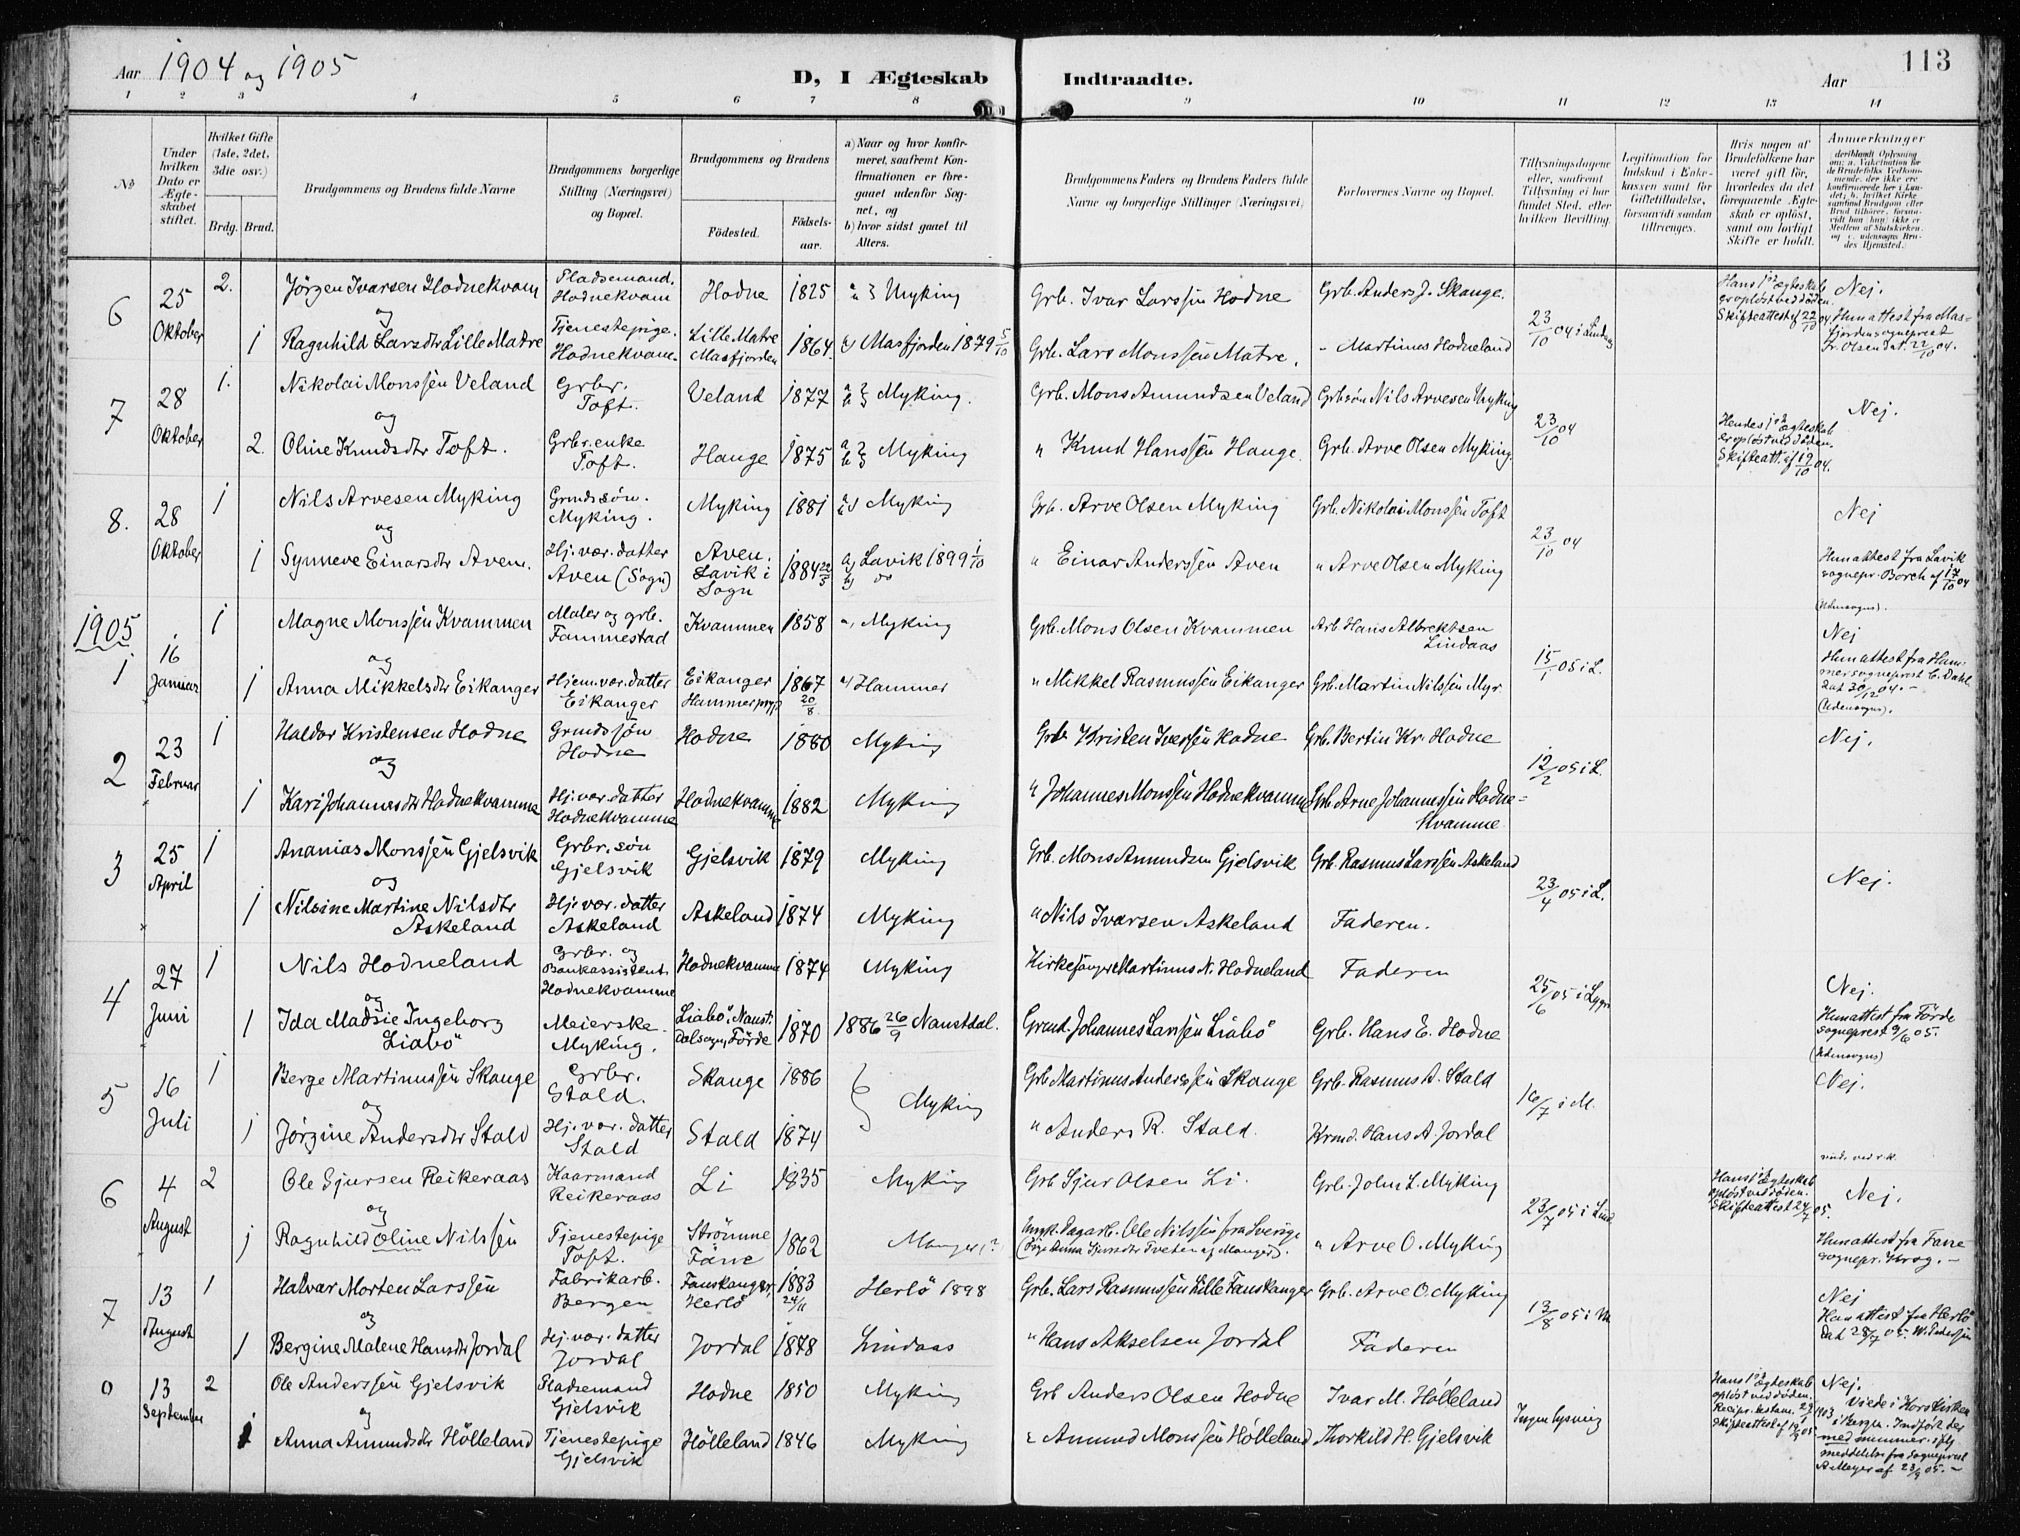 Aar 1904 og 1905
D, I Ægteskab Indtraadte.
Aar
113
1 2 3 4 5 6 7 8 9 10 11 12 13 14
No
Under hvilken Dato er Ægteskabet stiftet.
Hvilket Gifte (1ste, 2det, 3die osv.)
Brdg. Brud.
Brudgommens og Brudens fulde Navne
Brudgommens borgerlige Stilling (Næringsvei) og Bopæl.
Brudgommens og Brudens
Födested.
Födselsaar.
a) Naar og hvor konfirmeret, saafremt Konfirmationen er foregaaet udenfor Sognet, og
b) hvor sidst gaaet til Alters.
Brudgommens Faders og Brudens Faders fulde Navne og borgerlige Stillinger (Næringsvei)
Forlovernes Navne og Bopæl.
Tillysningsdagene eller, saafremt Tillysning ei har fundet Sted, efter hvilken Bevilling
Legitimation for Indskud i Enkekassen samt for Giftetilladelse, forsaavidt saadan tiltrænges.
Hvis nogen af Brudefolkene har været gift för, hvorledes da det foregaaende Ægteskab er oplöst, samt om lovligt Skifte er holdt.
Anmerkninger
6 25 Oktober 2. Jörgen Ivarsen Hodnekvam Pladsemand. Hodnekvam Hodne 1825 Myking Grb. Ivar Larssen Hodne Grb. Anders J. Skauge. 23/10 04 i Lindaas Hans 1ste Ægteskab er oplöst ved döden. Skifteattest af 22/10 04. Nej.
og
1 Ragnhild Larsdtr Lille Matre Tjenestepige. Hodnekvam Lille Matre Masfjorden 1864. a) Masfjorden 1879 5/10 Grb. Lars Monssen Matre. - Martinus Hodneland Hun attest fra Masfjorden sogneprest Fr. Olsen dat. 22/10 04.
7 28 Oktober 1. Nikolai Monssen Veland Grbr. Toft. Veland 1877 a b Myking. Grb. Mons Amundsen Veland Grb.søn Nils Arvesen Myking 23/10 04 Nej.
og
2. Oline Knudsdtr Toft. Grbr. enke Toft. Hauge 1875 a b Myking " Knud Hanssen Hauge. Grb. Arve Olsen Myking. Hendes 1ste Ægteskab er oplöst ved döden. Skifteatt. af 19/10 04.
8. 28 Oktober 1 Nils Arvesen Myking Grmds.søn. Myking. Myking 1881 Myking Grb. Arve Olsen Myking Grb. Nikolai Monssen Toft 23/10 04 Nej
og
1 Synneve Einarsdtr Aven. Hj. vær. datter Aven (Sogn) Aven. Lavik i Sogn 1884 22/5 a) Lavik 1899 1/10 b) do " Einar Anderssen Aven " Arve Olsen Myking Hun attest fra Lavik sognepr. Borch af 17/10 04 (Udensogns).
1905
1 16 Januar 1 Magne Monssen Kvammen Maler og grb. Fammestad Kvammen 1858 a) Myking Grb. Mons Olsen Kvammen Arb. Hans Albrektsen Lindaas 15/1 05 i L. Nej
og
1 Anna Mikkelsdtr Eikanger Hjem. vær. datter Eikanger Eikanger Hammer prgj. 1867 20/8. a) Hammer " Mikkel Rasmussen Eikanger Grb. Martin Nilssen Myr. Hun attest fra Hammer sogneprest C. Dahl. Dat 30/12 04. - (Udensogns).
2 23 Februar 1 Haldor Kristensen Hodne Grmdssøn Hodne Hodne 1880 Myking Grb Kristen Iversen Hodne Grb. Bertin Kr. Hodne 12/2 05 i L. Nej.
og
1 Kari Johannesdtr Hodnekvamme Hj. vær. datter Hodnekvamme Hodnekvamme 1882 Myking " Johannes Monssen Hodnekvamme Grb. Arne Johannessen Hodnekvamme
3 25 April 1 Ananias Monssen Gjelsvik Grbr. søn Gjelsvik Gjelsvik 1879 Myking Grb. Mons Amundsen Gjelsvik Grb. Rasmus Larssen Askeland 23/4 05 i L. Nej.
og
1 Nilsine Martine Nilsdtr Askeland Hj. vær. datter Askeland Askeland 1874 Myking " Nils Ivarsen Askeland Faderen.
4 27 Juni 1 Nils Hodneland Grbr. og Bankassistent. Hodnekvamme Hodnekvamme 1874 Myking Kirkesanger Martinus N. Hodneland Faderen 25/6 05 i Lygre Nej.
og
1 Ida Madsie Ingeborg Liabö Meierske. Myking. Liabö, Naustdals sogn, Förde 1870 1886 26/9 Naustdal. Grmd. Johannes Larssen Liabö Grb. Hans E. Hodne Hun attest fra Förde sogneprest 9/6 05. (Udensogns)
5 16 Juli 1 Berge Martinussen Skauge Grbr. Stald. Skauge 1886 Myking Grb. Martinus Anderssen Skauge Grb. Rasmus A. Stald 16/7 i M. Nej.
og
1 Jörgine Andersdtr Stald Hj. vær. datter Stald Stald 1874 " Anders R. Stald. Krmd. Hans A. Jordal
6 4 August 2 Ole Sjursen Reikeraas Kaarmand Reikeraas Li 1835 Myking Grb Sjur Olsen Li. Grb. John L. Myking 23/7 05 i Lind. Hans 1ste Ægteskab oplöst ved döden. Skifteattest 24/7 05. Nej.
og
1 Ragnhild Oline Nilssen Tjenestepige Toft. Strömme Fane 1862 Manger ? Ole Nilssen fra Sverige " Arve O. Myking Hun attest fra Fane sognepr. Krog. -
7 13 August 1 Halvar Morten Larssen Fabrikarb. Bergen Fauskanger, Herlö 1883 24/11 Herlö 1898 Grb. Lars Rasmussen Lille Fauskanger Grb. Arve O. Myking 13/8 05 i M Nej
og
1 Bergine Malene Hansdtr Jordal Hj. vær. datter Jordal Jordal 1878 Lindaas " Hans Akselsen Jordal Faderen Han attest fra Herlö dat 28/7 05. W. Pedersen
13 September 2 Ole Anderssen Gjelsvik Pladsemand Gjelsvik Hodne 1850 Myking Grb Anders Olsen Hodne Ivar M. Hølleland Ingen lysning Hans 1ste Ægteskab oplöst ved döden. Nej.
og
1 Anna Amundsdtr Hölleland Tjenestepige Gjelsvik Hölleland 1846 Myking Amund Monssen Hølleland Thorkild H. Gjelsvik Viede i Korskirken i Bergen. Indfört der med nummer iflg meddelelse fra sogneprest A. Meyer af 23/9 05. -